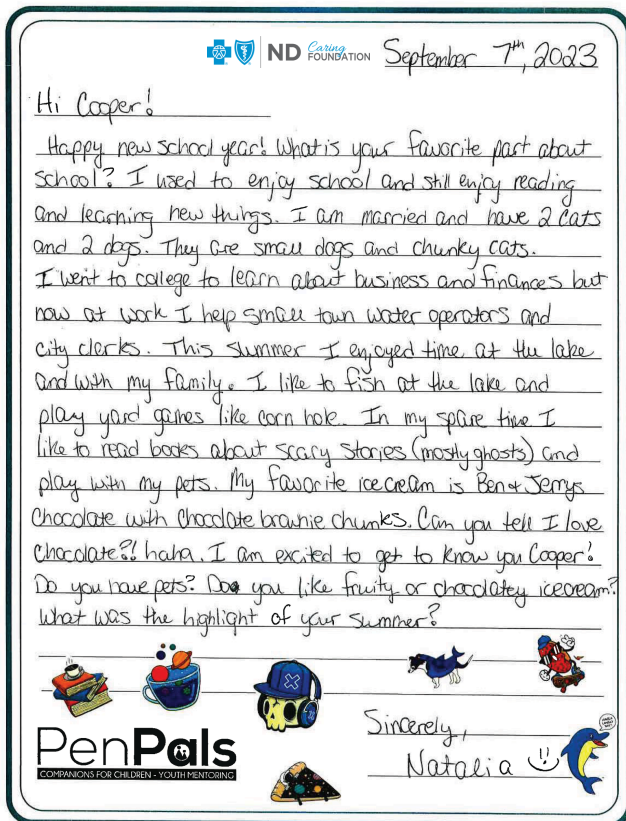 ND Caring FOUNDATION
September 7th, 2023
Hi Cooper!
Happy new school year! What is your favorite part about
school? I used to enjoy school and still enjoy reading
and learning new things. I am married and have 2 cats
and 2 dogs. They are small dogs and chunky cats.
I went to college to learn about business and finances but
now at work I help small town water operators and
city clerks. This summer I enjoyed time at the lake
and with my family. I like to fish at the lake and
play yard games like corn hole. In my spare time I
like to read books about scary stories (mostly ghosts) and
play with my pets. My favorite ice cream is Ben & Jerrys
Chocolate with Chocolate brownie chunks. Can you tell I love
chocolate?! haha. I am excited to get to know you Cooper!
Do you have pets? Do you like fruity or chocolatey icecream?
What was the highlight of your summer?
Sincerely,
Natalia
PenPals
COMPANIONS FOR CHILDREN - YOUTH MENTORING